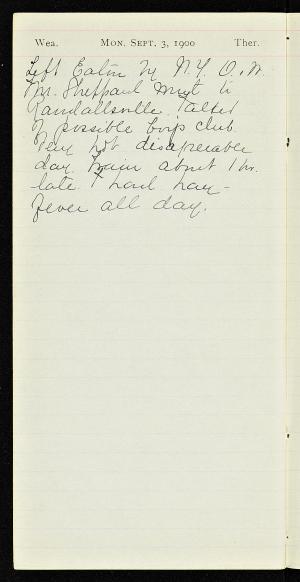 Wea. MON. SEPT. 3, 1900 Ther.
Left Eaton by N.Y. O. & W.
Mr. Sheppard went to
Randallsville. Talked
of possible boys club.
Very hot disagreeable
day. Train about 1 hr.
late. I had hay-
fever all day.